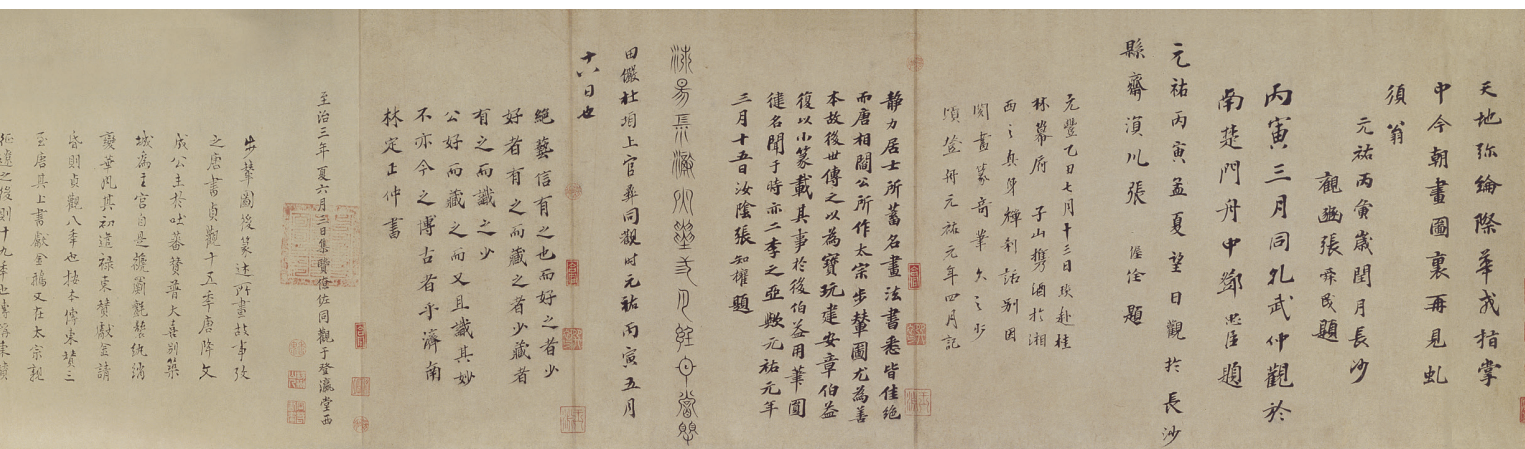 天地弥綸際華戎指掌
中今朝畫圖裏再見虬
須翁
元祐丙寅歲閏月長沙
觀 張舜民題
丙寅三月同孔武仲觀於
南楚門舟中鄧忠臣題
元祐丙寅孟夏望日觀於長沙
縣齋湞川張 題
元豐乙日七月十三日 赴桂
林幕府 子山攜酒於湘
西之真身禪刹話別因
閱畫篆奇筆久之 
 元祐元年四月記
静力居士所蓄名畫法書悉皆佳絶
而唐相閻公所作太宗步輦圖尤為善
本故後世傳之以為寶玩建安章伯益
復以小篆載其事於後伯益用筆圓
健名聞于時亦二李之亞歟元祐元年
三月十五日汝陰張知權題
田儼杜垍上官彝同觀時元祐丙寅五月
十八日也
絶藝信有之也而好之者少
好者有之而藏之者少藏者
有之而識之少
公好而藏之而又且識其妙
不亦今之博古者乎濟南
林定正仲書
至治三年夏六月三日集賢僚佐同觀于登瀛堂西
步輦圖後篆述所畫故事攷
之唐書貞觀十五年唐降文
成公主於吐蕃贊普大喜别築
城為王宮自是襲 氈罽紈綃
 華風其初遣祿東贊獻金請
昏則貞觀八年也按本傳東贊三
至唐其上書獻金鵝又在太宗親
征遼之後則十九年也